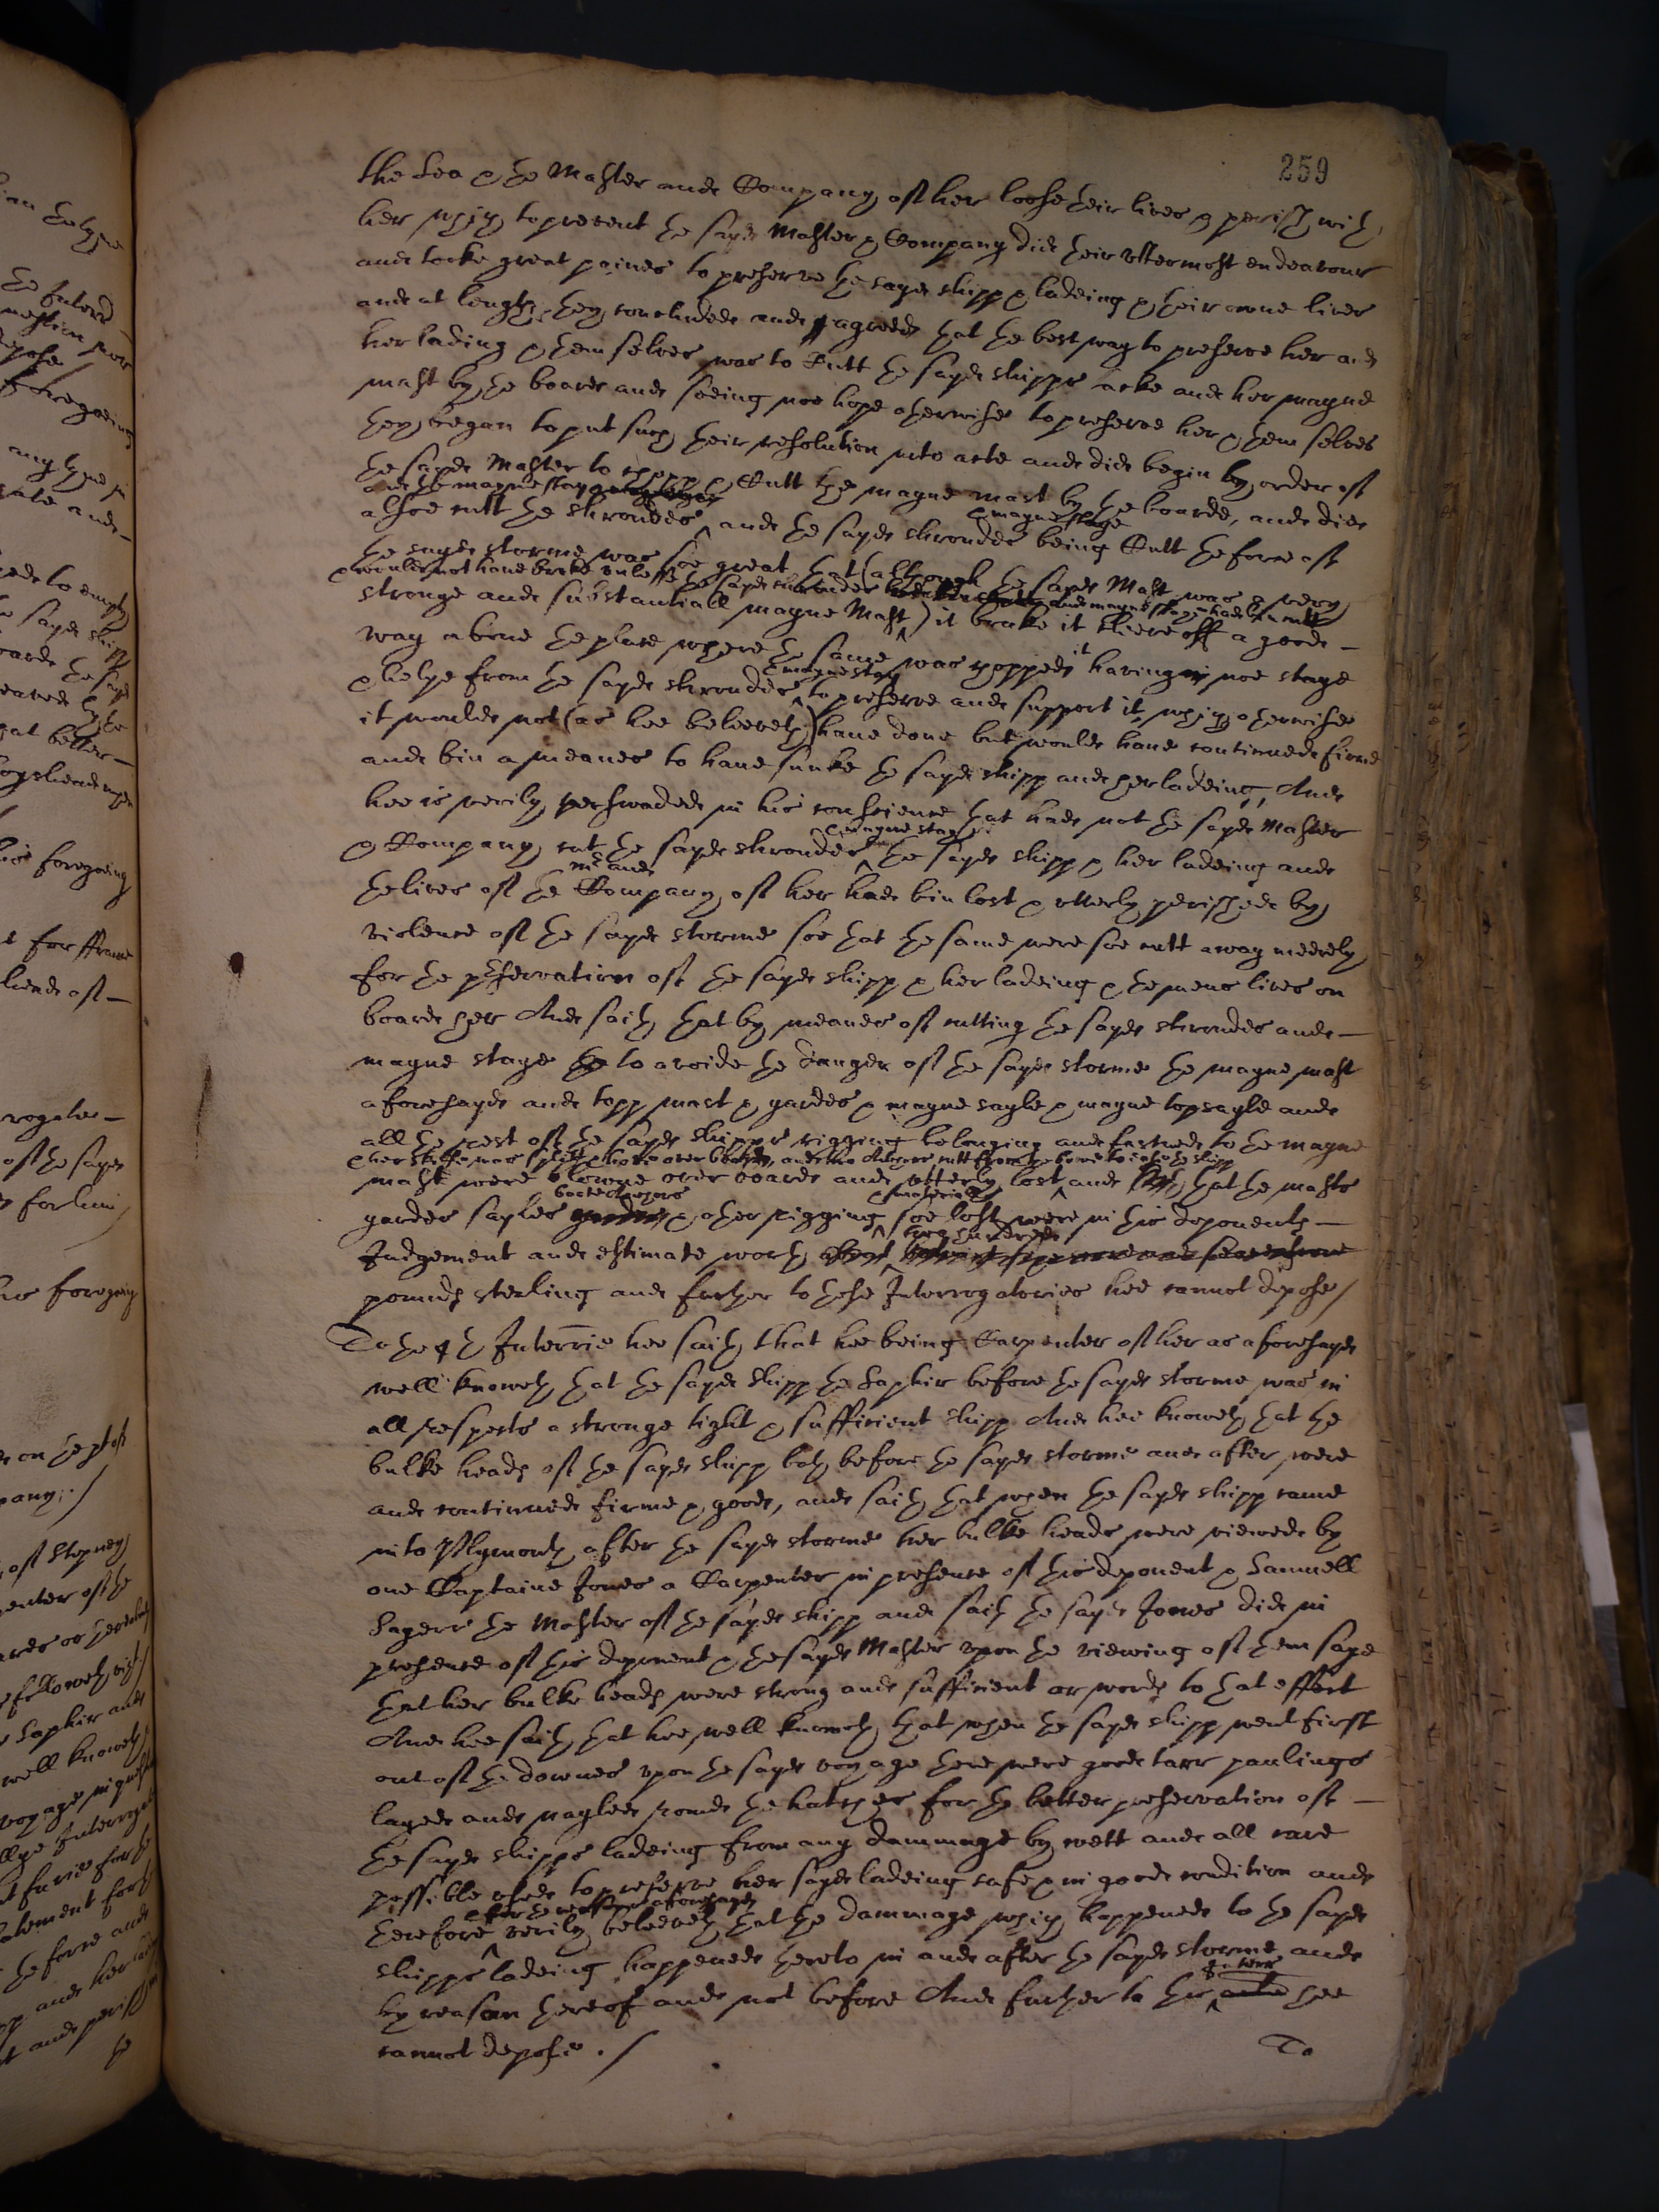 259
the Sea & the Master and Company of her loose their lives & perish with
her which to prevent the sayd Master & Company did their uttermost endeavour
and tooke great paines to preserve the sayd shipp & ladeing & their owne lives
and at length they concluded and agreed that the best way to preserve her and
her lading & themselves was to Cutt the sayd shipps and her mayne
mast by the board and seeing noe hope otherwise to preserve her & them selves
they began to put such their resolution into acte and did begin by order of
the sayd Master to chopp & Cutt the mayne mast by the boarde, and did
and the mayne stay
alsoe cutt the shroudes and the sayd shroudes & mayne staye being Cutt the force of
the sayd storme was soe great that (although the sayd Mast was a very
& would not have broke unlesse the sayd shroudes and mayne staye had bin cutt
stronge and substantiall mayne Mast) it brake it sheere off a good
way above the place where the same was chopped it having noe staye
& helpe from the sayd shroudes & mayne stay to preserve and support it, which otherwise
it would not (as hee beleeveth) have done but would have continued firme
and bin a meanes to have sunke the sayd shipp and her ladeing, And
hee is verily perswaded in his conscience that had not the sayd Master
& Company cut the sayd shroudes & mayne stay the sayd shipp & her ladeing and
the lives of the Mr and Company of her had bin lost & utterly perished by
violence of the sayd storme soe that the same were soe cutt away meerely
for the preservation of the sayd shipp & her ladeing & the mens lives on
board her And saith that by meanes of cutting the sayd shroudes and
mayne staye to avoide the danger of the sayd storme the mayne mast
aforesayd and topp mast & yardes & mayne sayle & mayne topsayle and
all the rest of the sayd shipps rigging belonging and fastned to the mayne
& her skiffe was splitt & hove over board, and two Anchors cutt from the bowe to ease the shipp
mast were blowne over board and utterly lost and that the masts
yardes sayles boate Anchors & other rigging & materialls soe lost were in this deponents
Judgement and estimate worth two hundred
pounds sterling and further to these Interrogatories hee cannot depose /
To the 4th Interrie hee saith that hee being Carpenter of her as aforesayd
well knoweth that the sayd shipp the Saphir before the sayd storme was in
all respects a stronge tight & sufficient shipp And hee knoweth that the
bulke heads of the sayd shipp both before the sayd storme and after were
and continued firme & good, and saith that when the sayd shipp came
into Plymouth after the sayd storme her bulke heads were viewed by
one Captaine Jones a Carpenter in presence of this deponent & Samuell
Sagerr the Master of the sayd shipp and saith the sayd Jones did in
presence of this deponent & the sayd Master upon the viewing of them saye
that her bulke heads were strong and sufficient or words to that effect
And hee saith that hee well knoweth that when the sayd shipp went first
out of the downes upon the sayd voyage there were good tarr paulings
layed and nayled round the hatches for the better preservation of
the sayd shipps ladeing from any dammage by wett and all care
possible used to preserve her sayd ladeing safe & in good condition and
therefore & for the reasons aforesayd verily beleeveth that the dammage which happened to the sayd
shipps ladeing happened thereto in and after the sayd storme and
by reason thereof and not before And further to this Interr hee
cannot depose . /
To